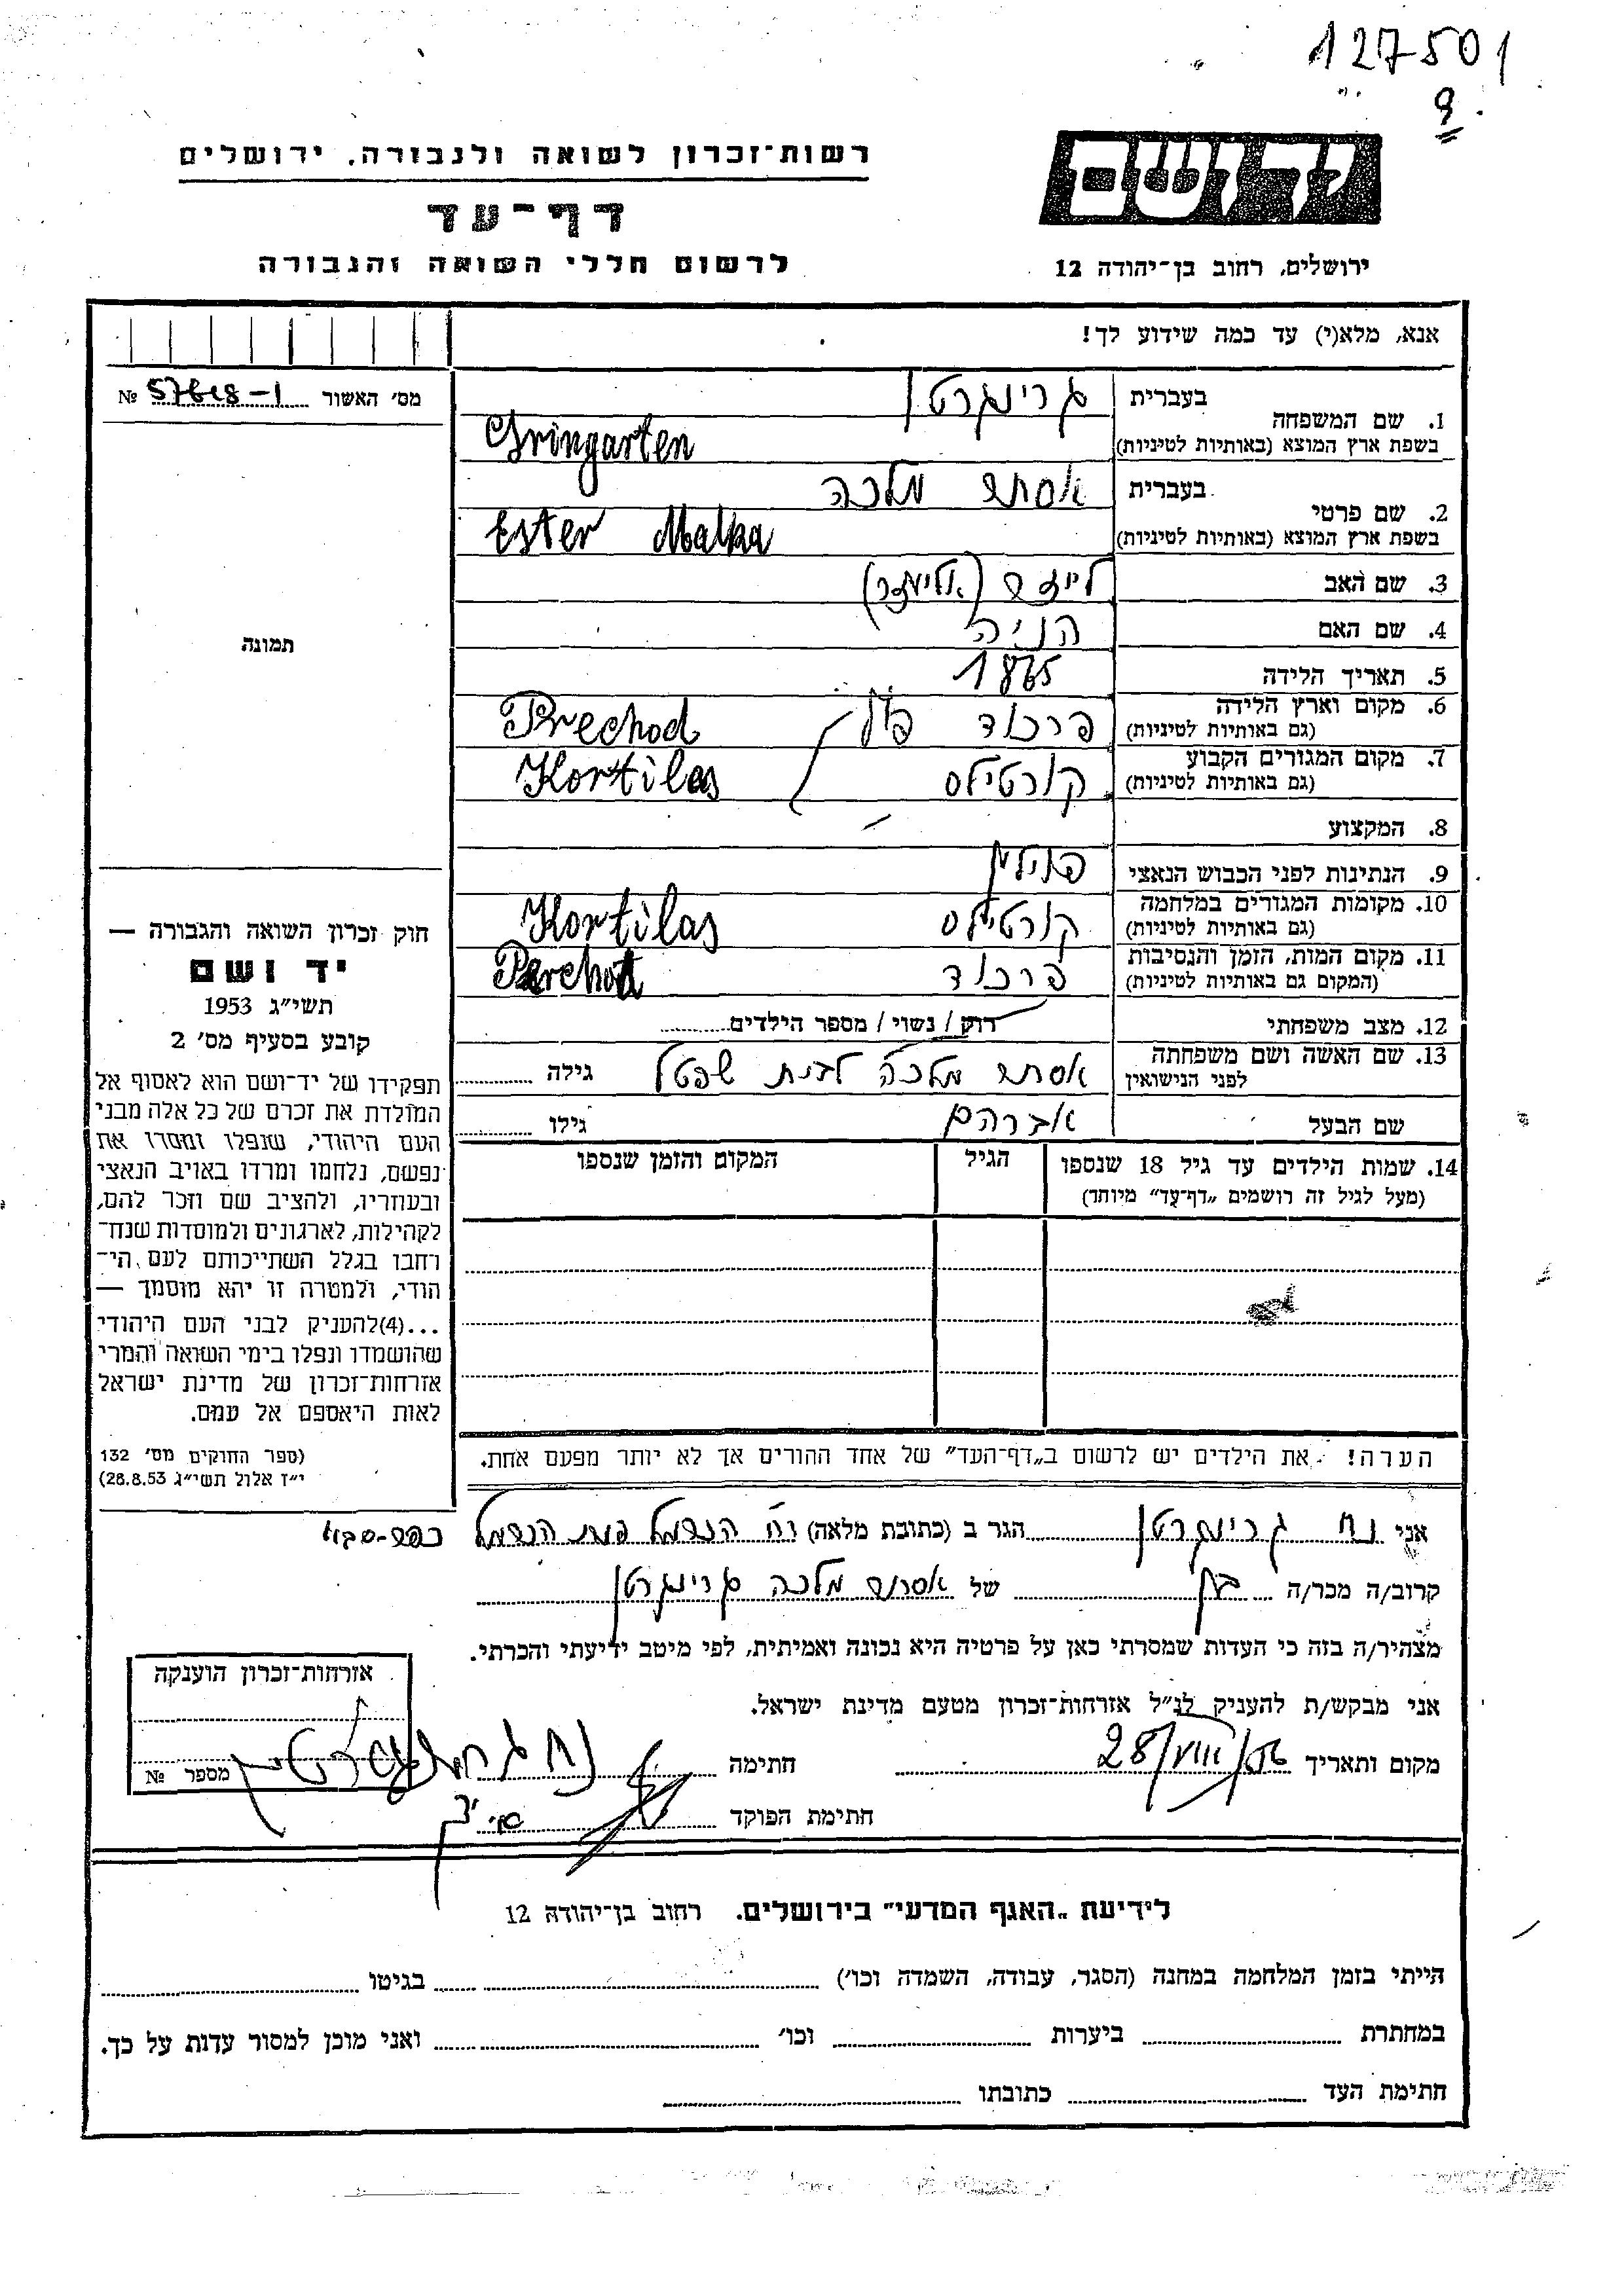 127501
9
יד ושם
ירושלים, רחוב בן־יהודה 12
רשות־זכרון לשואה ולגבורה, ירושלים
דף־עד
לרשום חללי השואה והגבורה
אנא, מלא(י) עד כמה שידוע לך!
מס׳ האשור 57618-1 №
תמונה
1. שם המשפחה
בעברית גרינגרטן
בשפת ארץ המוצא (באותיות לטיניות) Gringarten
2. שם פרטי
בעברית אסתר מלכה
בשפת ארץ המוצא (באותיות לטיניות) Ester Malka
3. שם האב לייזר (אליעזר)
4. שם האם הניה
5. תאריך הלידה 1865
6. מקום וארץ הלידה פרכוד פולין Prechod
(גם באותיות לטיניות)
7. מקום המגורים הקבוע קורטילס Kortilas
(גם באותיות לטיניות)
8. המקצוע
9. הנתינות לפני הכבוש הנאצי פולין
10. מקומות המגורים במלחמה קורטילס Kortilas
(גם באותיות לטיניות)
11. מקום המות, הזמן והנסיבות פרכוד Perchod
(המקום גם באותיות לטיניות)
12. מצב משפחתי רווק / נשוי / מספר הילדים
13. שם האשה ושם משפחתה אסתר מלכה לבית שפטל גילה
לפני הנישואין
שם הבעל אברהם גילו
14. שמות הילדים עד גיל 18 שנספו הגיל המקום והזמן שנספו
(מעל לגיל זה רושמים „דף־עד” מיוחד)
הערה! את הילדים יש לרשום ב„דף־העד” של אחד ההורים אך לא יותר מפעם אחת.
חוק זכרון השואה והגבורה —
יד ושם
תשי״ג 1953
קובע בסעיף מס׳ 2
תפקידו של יד־ושם הוא לאסוף אל
המולדת את זכרם של כל אלה מבני
העם היהודי, שנפלו ומסרו את
נפשם, נלחמו ומרדו באויב הנאצי
ובעוזריו, ולהציב שם וזכר להם,
לקהילות, לארגונים ולמוסדות שנח־
רחבו בגלל השתייכותם לעם הי־
הודי, ולמטרה זו יהא מוסמך —
...(4)להעניק לבני העם היהודי
שהושמדו ונפלו בימי השואה והמרי
אזרחות־זכרון של מדינת ישראל
לאות היאספם אל עמם.
(ספר החוקים מס׳ 132
י״ז אלול תשי״ג 28.8.53)
אני נח גרינגרטן הגר ב (כתובת מלאה) רח׳ הכרמל פינת הכרמל כפר-סבא
קרוב/ה מכר/ה בן של אסתר מלכה גרינגרטן
מצהיר/ה בזה כי העדות שמסרתי כאן על פרטיה היא נכונה ואמיתית, לפי מיטב ידיעתי והכרתי.
אני מבקש/ת להעניק לנ״ל אזרחות־זכרון מטעם מדינת ישראל.
מקום ותאריך 28/VIII/56 חתימה נח גרינגרטן
חתימת הפוקד
אזרחות־זכרון הוענקה
מספר №
לידיעת „האגף המדעי” בירושלים. רחוב בן־יהודה 12
הייתי בזמן המלחמה במחנה (הסגר, עבודה, השמדה וכו׳) בגיטו
במחתרת ביערות וכו׳ ואני מוכן למסור עדות על כך.
חתימת העד כתובתו